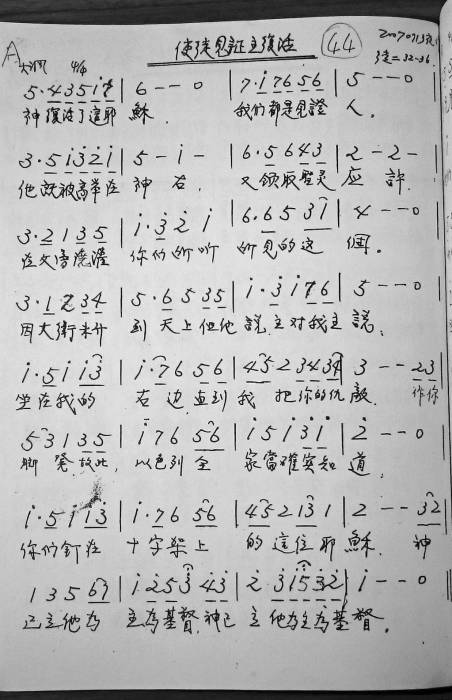 使徒見証主復活 44 20070713
A 大調 4/4 徒二32-36
5·4 3 5 1 7 | 6 - - 0 | 7·1 7 6 5 6 | 5 - - 0
神復活了這耶 穌. 我们都是見證 人.
3·5 1 3 2 1 | 5 - 1 - | 6·5 6 4 3 | 2 - 2 -
他既被高举在 神右. 又领取聖灵 应許.
3·2 1 3 5 | 1·3 2 1 | 6·6 5 3 1 | 4 - - 0
在父旁徳澆 你们所听 所見的这 個。
3·1 2 3 4 | 5·6 5 3 5 | 1·3 1 7 6 | 5 - - 0
因大衛未升 到天上但他 説主对我主 説:
1·5 1 1 3 | 1·7 6 5 6 | 4 5 2 3 4 3 4 | 3 - - 2 3
坐在我的 右边直到我 把你的仇敵 作你
5 3 1 3 5 | 1 7 6 5 6 | 1 5 1 3 1 | 2 - - 0
脚凳故此, 以色列全 家當確实知 道.
1·5 1 1 3 | 1·7 6 5 6 | 4 5 2 1 3 1 | 2 - - 3 2
你们釘在 十字架上 的這位耶 穌. 神
1 3 5 6 7 | 1 2 5 3 4 3 | 2·3 1 5 3 2 | 1 - - 0
已立他为 主為基督,神已 立他为主為基督.